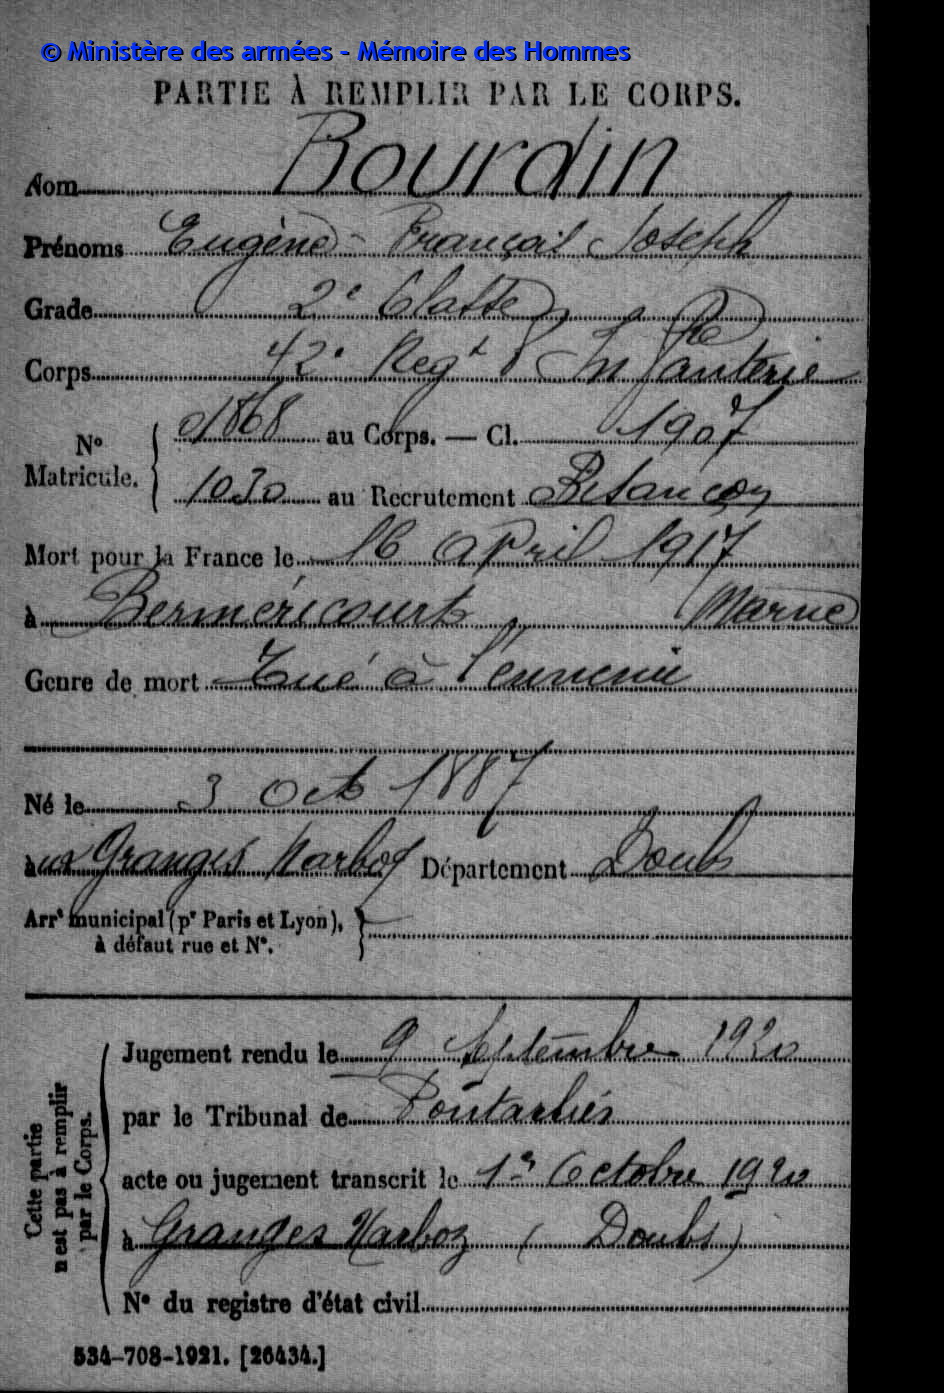 © Ministère des armées - Mémoire des Hommes
PARTIE À REMPLIR PAR LE CORPS.
Nom Bourdin
Prénoms Eugène - François Joseph
Grade 2e Classe
Corps 42e Regt d'Infanterie
N° Matricule. 01868 au Corps. — Cl. 1907
1030 au Recrutement Besançon
Mort pour la France le 16 Avril 1917
à Berméricourt Marne
Genre de mort Tué à l'ennemi
Né le 3 Oct 1887
aux Granges Narboz Département Doubs
Arrt municipal (pr Paris et Lyon),
à défaut rue et N°.
Cette partie n'est pas à remplir par le Corps.
Jugement rendu le 9 Septembre 1920
par le Tribunal de Pontarlier
acte ou jugement transcrit le 1er Octobre 1920
à Granges Narboz (Doubs)
N° du registre d'état civil
534-708-1921. [26434.]